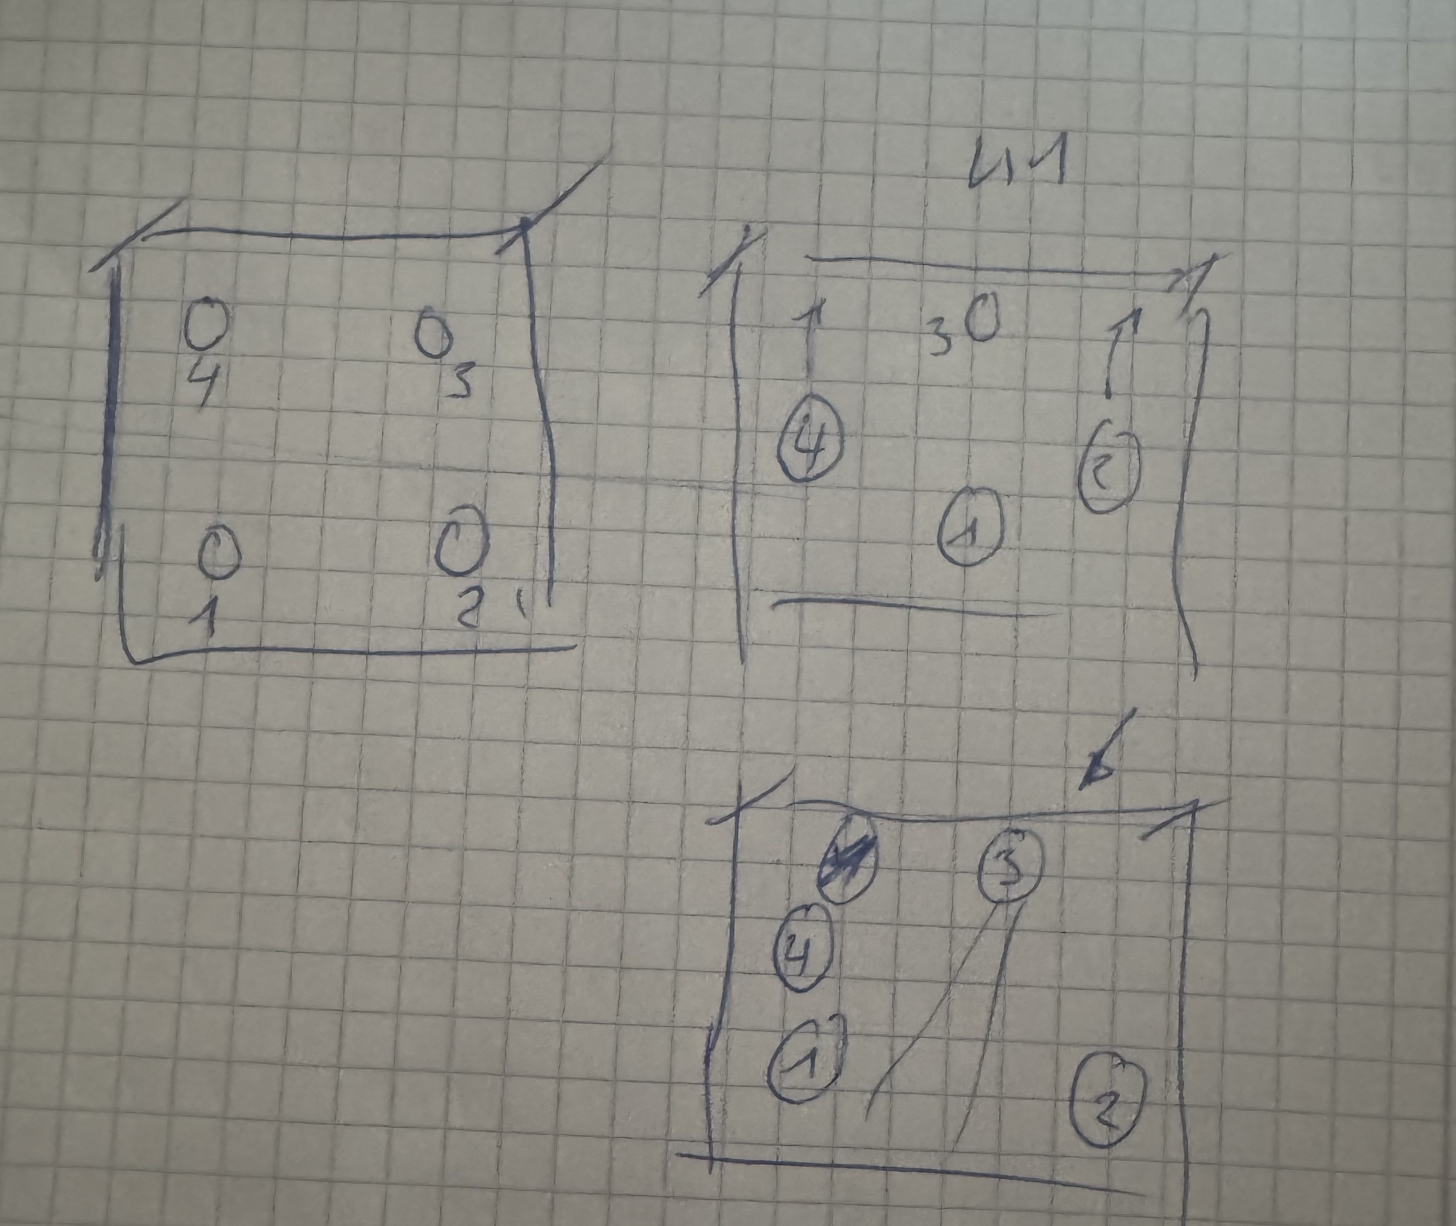 4 3
1 2
41
3
4 2
1
3
4
1
2